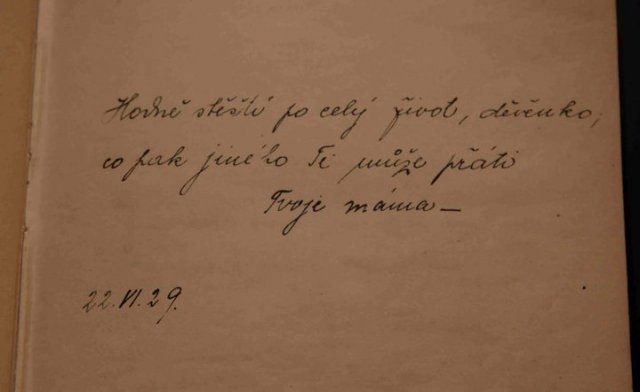 Hodně štěstí po celý život, děvčenko,
co pak jiného Ti může přáti
Tvoje máma —
22.VI.29.